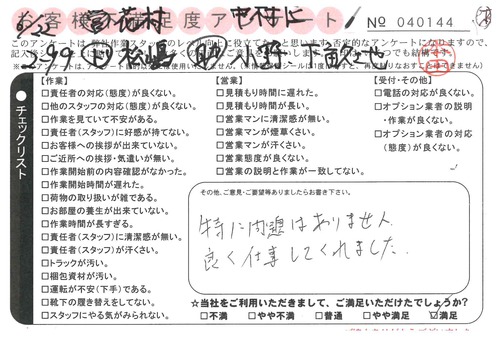 お客様満足度アンケート
No 040144
このアンケートは、弊社作業スタッフのレベル向上に役立てたいと思います。否定的なアンケートになりますので、
チェックリスト
【作業】
□責任者の対応（態度）が良くない。
□他のスタッフの対応（態度）が良くない。
□作業を見ていて不安がある。
□責任者（スタッフ）に好感が持てない。
□お客様への挨拶が出来ていない。
□ご近所への挨拶・気遣いが無い。
□作業開始前の内容確認がなかった。
□作業開始時間が遅れた。
□荷物の取り扱いが雑である。
□お部屋の養生が出来ていない。
□作業時間が長すぎる。
□責任者（スタッフ）に清潔感が無い。
□責任者（スタッフ）が汗くさい。
□トラックが汚い。
□梱包資材が汚い。
□運転が不安（下手）である。
□靴下の履き替えをしてない。
□スタッフにやる気がみられない。
【営業】
□見積もり時間に遅れた。
□見積もり時間が長い。
□営業マンに清潔感が無い。
□営業マンが煙草くさい。
□営業マンが汗くさい。
□営業態度が良くない。
□営業の説明と作業が一致してない。
【受付・その他】
□電話の対応が良くない。
□オプション業者の説明
・作業が良くない。
□オプション業者の対応
（態度）が良くない。
その他、ご意見・ご要望等ありましたらお書き下さい。
特に問題はありません
良く仕事してくれました。
☆当社をご利用いただきまして、ご満足いただけたでしょうか？
□不満 □やや不満 □普通 □やや満足 ☑満足